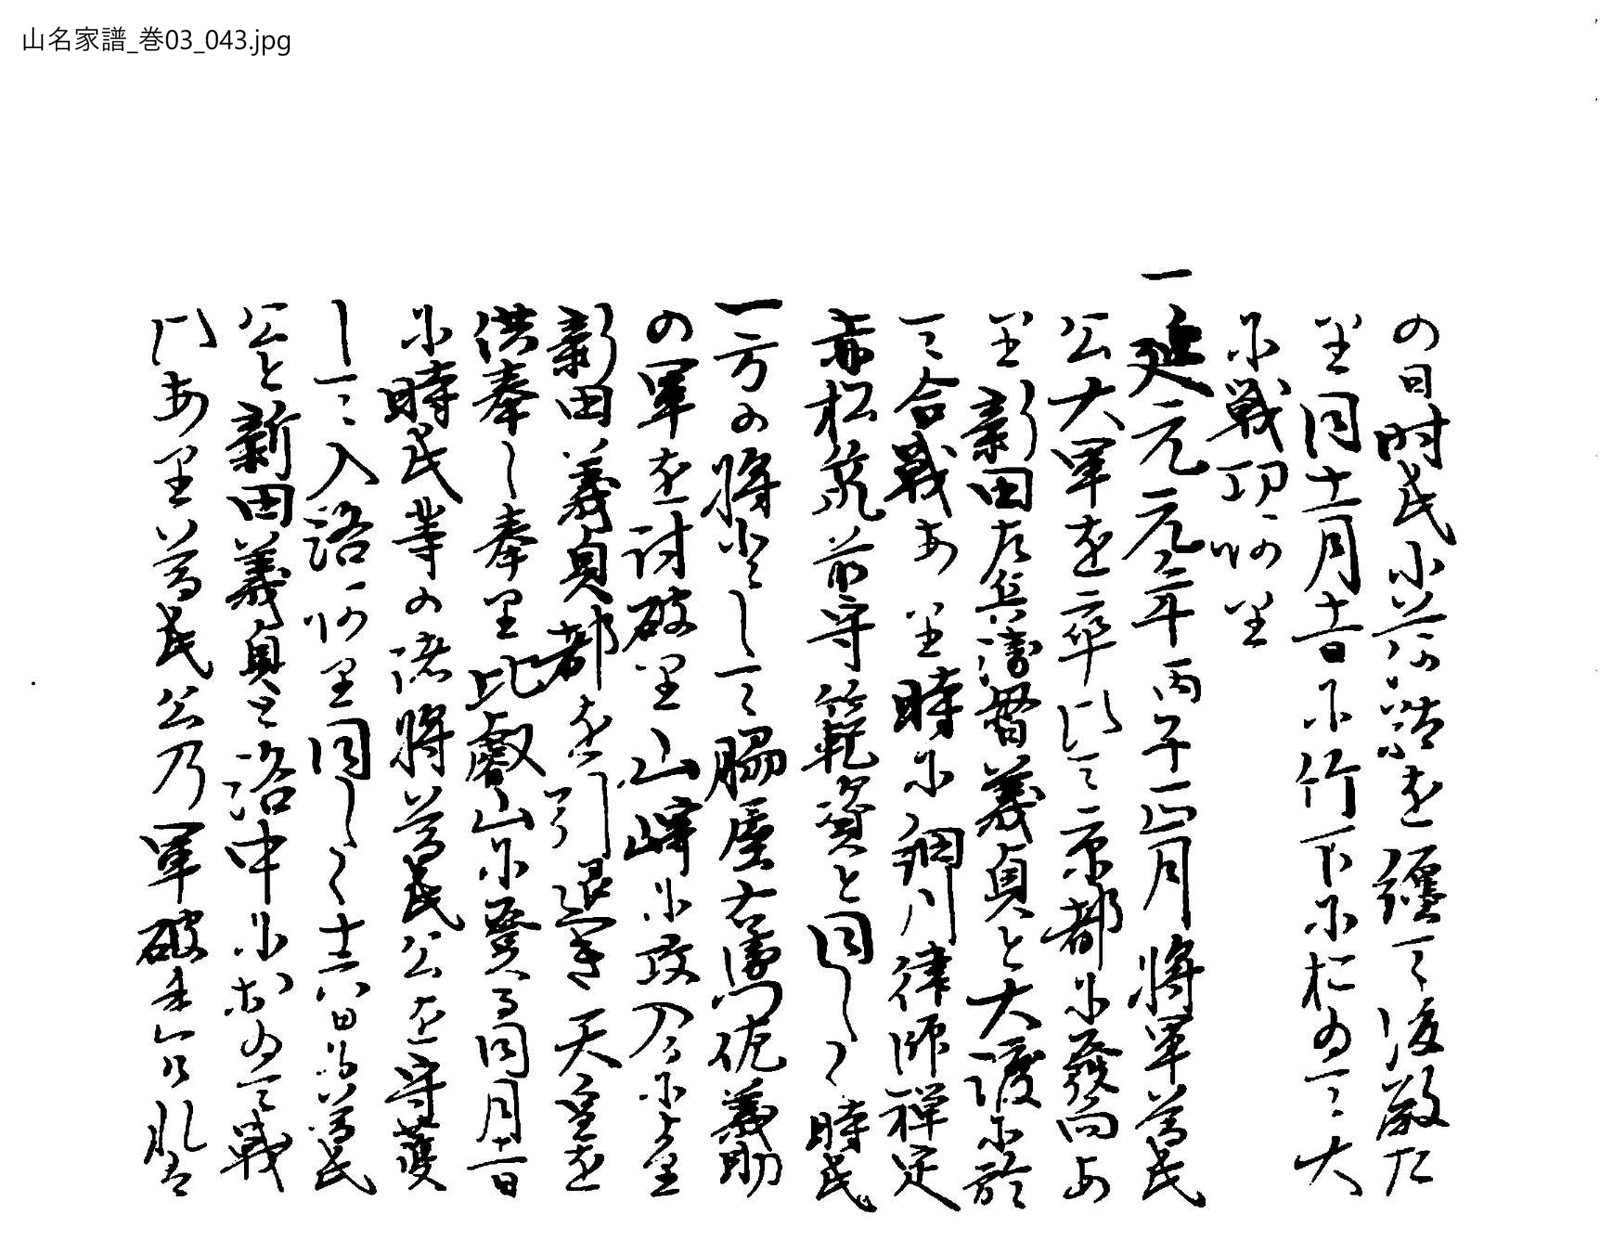 山名家譜_巻03_043.jpg
の日時氏小荷駄を纒て後殿た
り同十二月十一日に竹下に於ゐて大
に戦功あり
一延元元年丙子正月将軍尊氏
公大軍を率ひて京都に發向あ
り新田左兵衛督義貞と大渡に於
て合戦あり時に細川律師禅定
赤松筑前守範資と同しく時氏
一方の将として脇屋右衛門佐義助
の軍を討破り山崎に攻入るによつて
新田義貞都を引退き天皇を
供奉し奉り比叡山に登る同月十一日
に時氏等の諸将尊氏公を守護
して入洛あり同しく十六日尊氏
公と新田義貞と洛中におゐて戦
ひあり尊氏公乃軍破